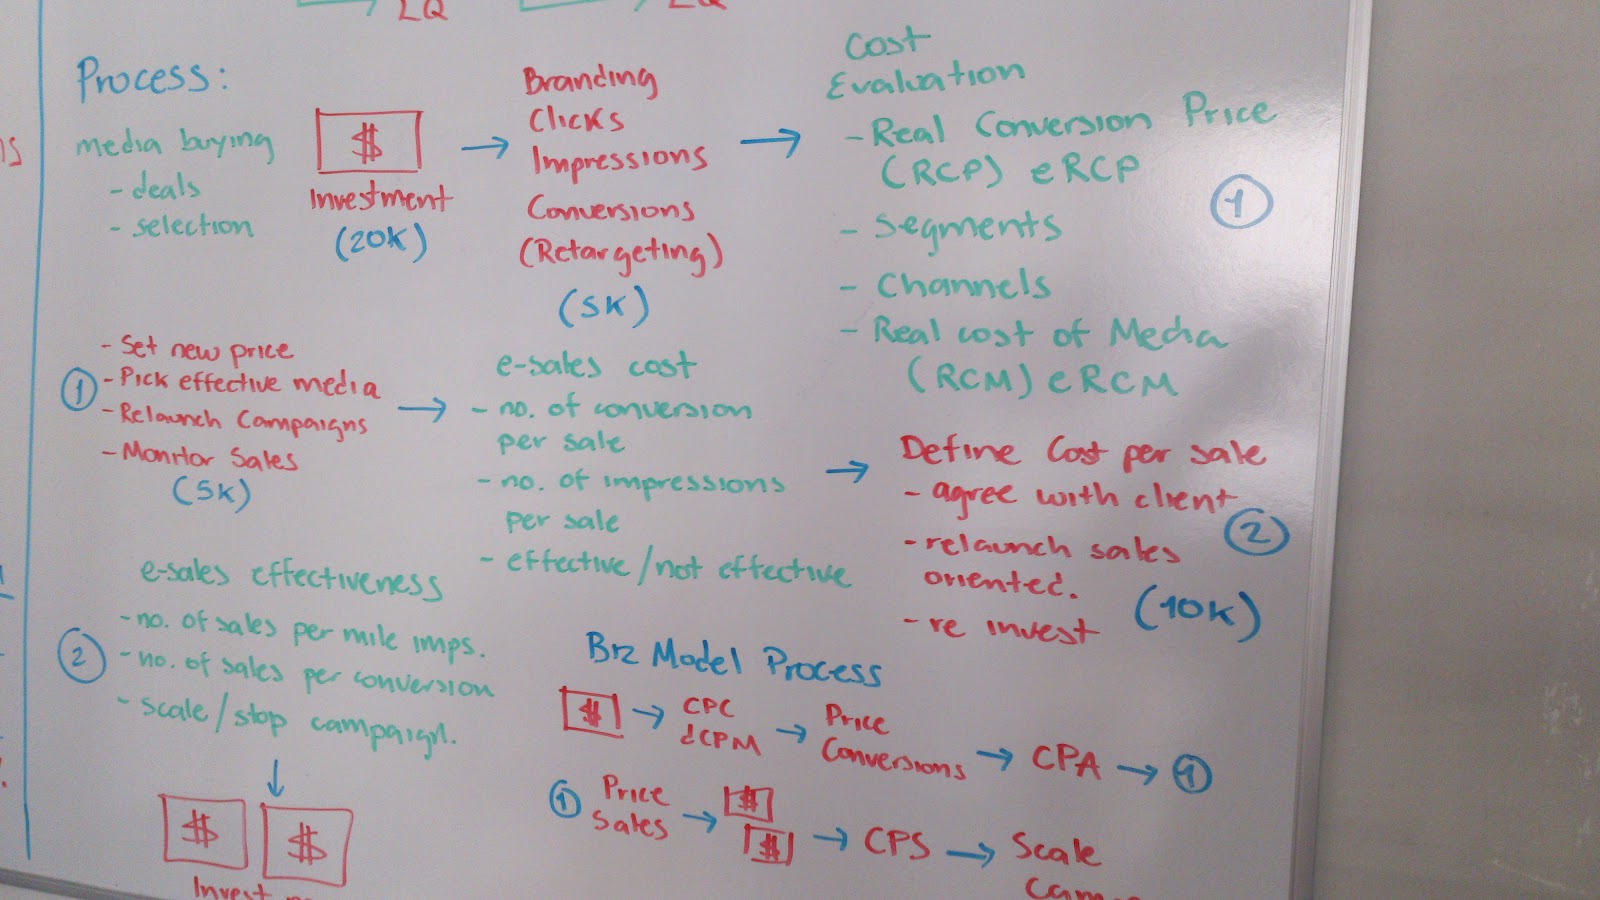 LQ
LQ
Process:
media buying
- deals
- selection
$
Investment
(20K)
Branding
Clicks
Impressions
Conversions
(Retargeting)
(5K)
Cost
Evaluation
- Real Conversion Price
(RCP) eRCP
- Segments
- Channels
- Real cost of Media
(RCM) eRCM
1
1
- Set new price
- Pick effective media
- Relaunch Campaigns
- Monitor Sales
(5K)
e-sales cost
- no. of conversion
per sale
- no. of impressions
per sale
- effective/not effective
Define Cost per sale
- agree with client
- relaunch sales
oriented.
- re invest
(10K)
2
2
e-sales effectiveness
- no. of sales per mile imps.
- no. of sales per conversion
- scale/stop campaign.
$ $
Invest
Biz Model Process
$
CPC
dCPM
Price
Conversions
CPA
1
1
Price
Sales
$
$
CPS
Scale